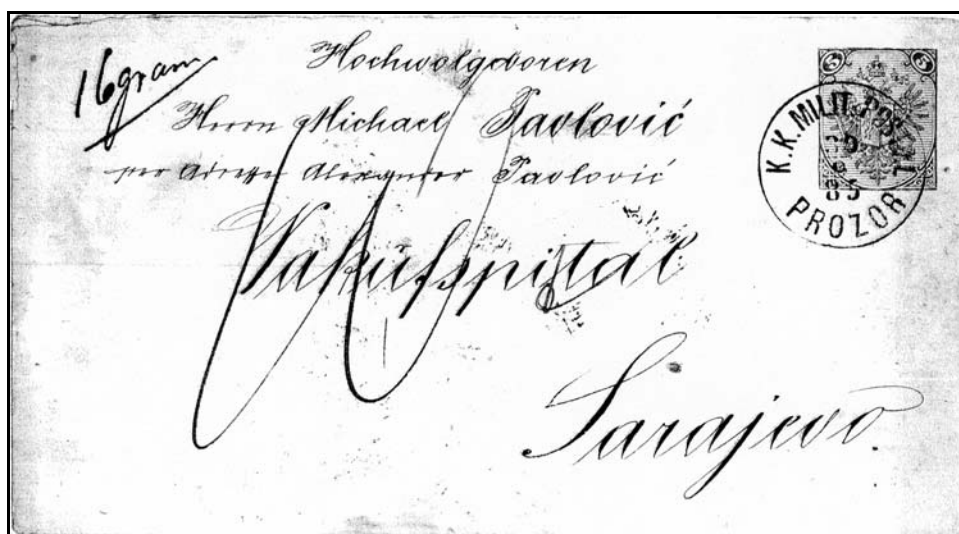 16 gram
Hochwolgeboren
Herrn Michael Pavlović
per Adresse Alexander Pavlović
Vakufspital
Sarajevo.
5 5
K.K. MILIT. POST
85
PROZOR